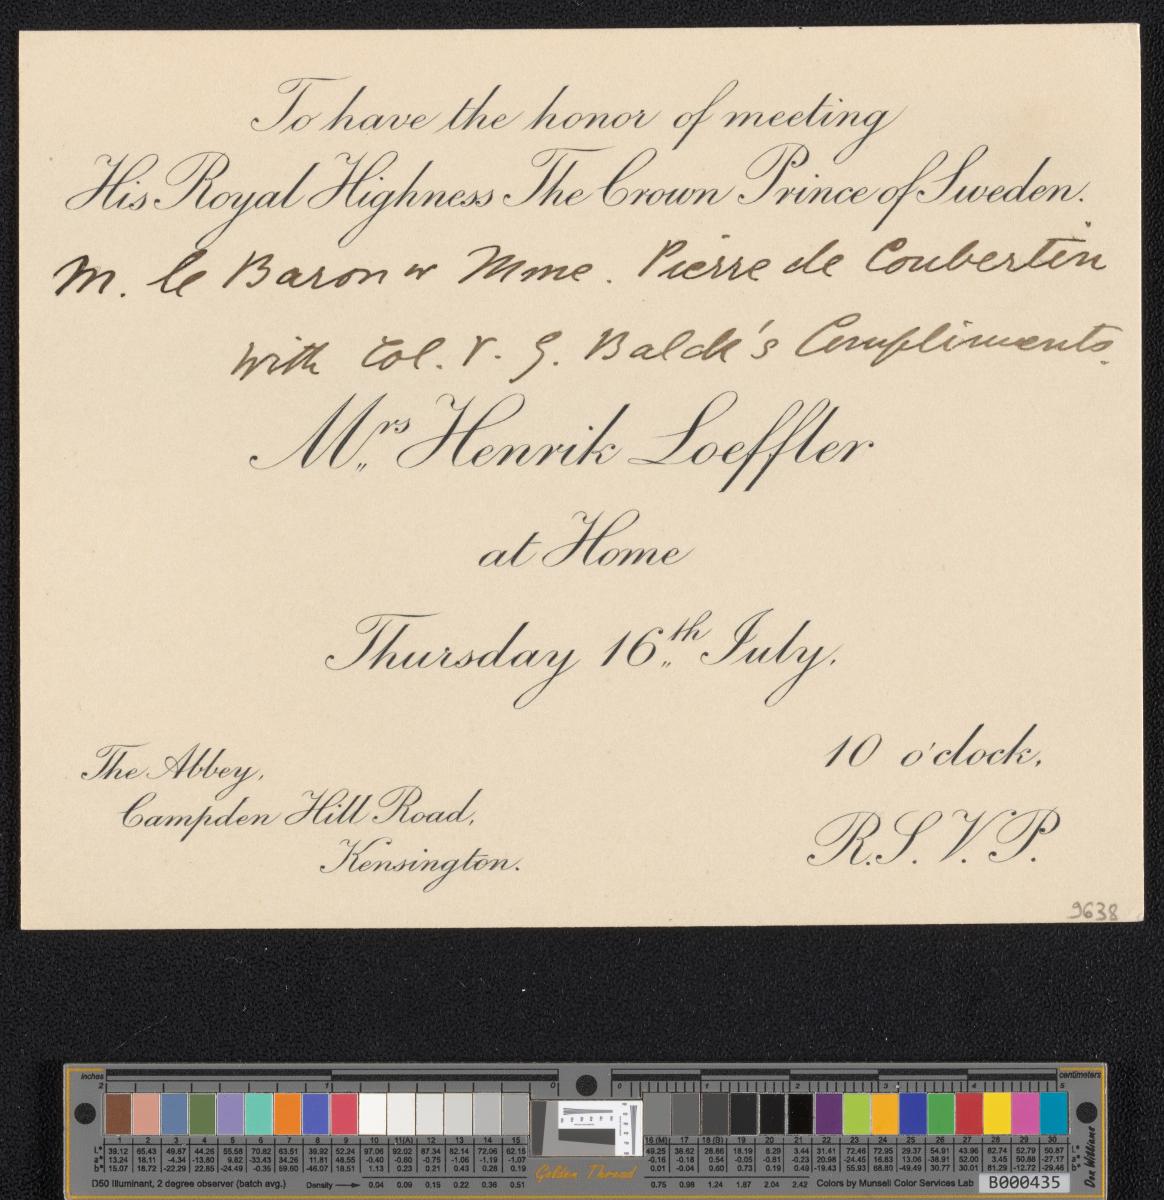 To have the honor of meeting
His Royal Highness The Crown Prince of Sweden.
M. le Baron & Mme. Pierre de Coubertin
with Col. V. G. Balck's Compliments.
Mrs Henrik Loeffler
at Home
Thursday 16th July.
10 o'clock.
The Abbey,
Campden Hill Road,
Kensington.
R.S.V.P.
9638
inches
centimeters
D50 Illuminant, 2 degree observer (batch avg.)
Density
0.04 0.09 0.15 0.22 0.36 0.51
Golden Thread
0.75 0.98 1.24 1.67 2.04 2.42
Colors by Munsell Color Services Lab
B000435
Don Williams